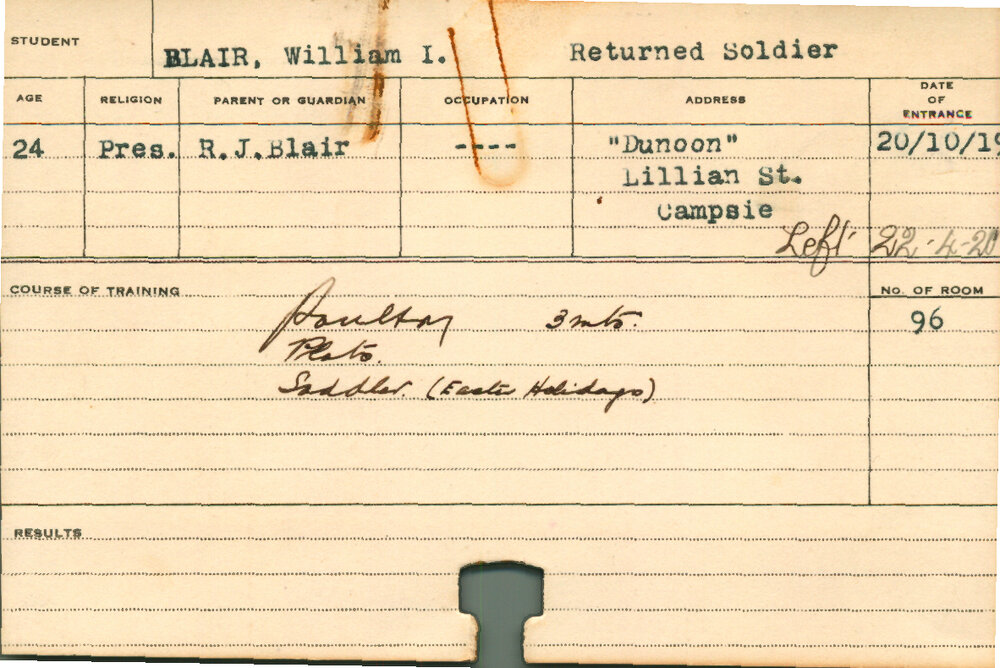 STUDENT
BLAIR, William I. Returned Soldier
AGE RELIGION PARENT OR GUARDIAN OCCUPATION ADDRESS DATE OF ENTRANCE
24 Pres. R.J.Blair ---- "Dunoon" 20/10/19
Lillian St.
Campsie
Left 22-4-20
COURSE OF TRAINING No. OF ROOM
Poultry 3 mts. 96
Plots.
Saddler. (Easter Holidays)
RESULTS